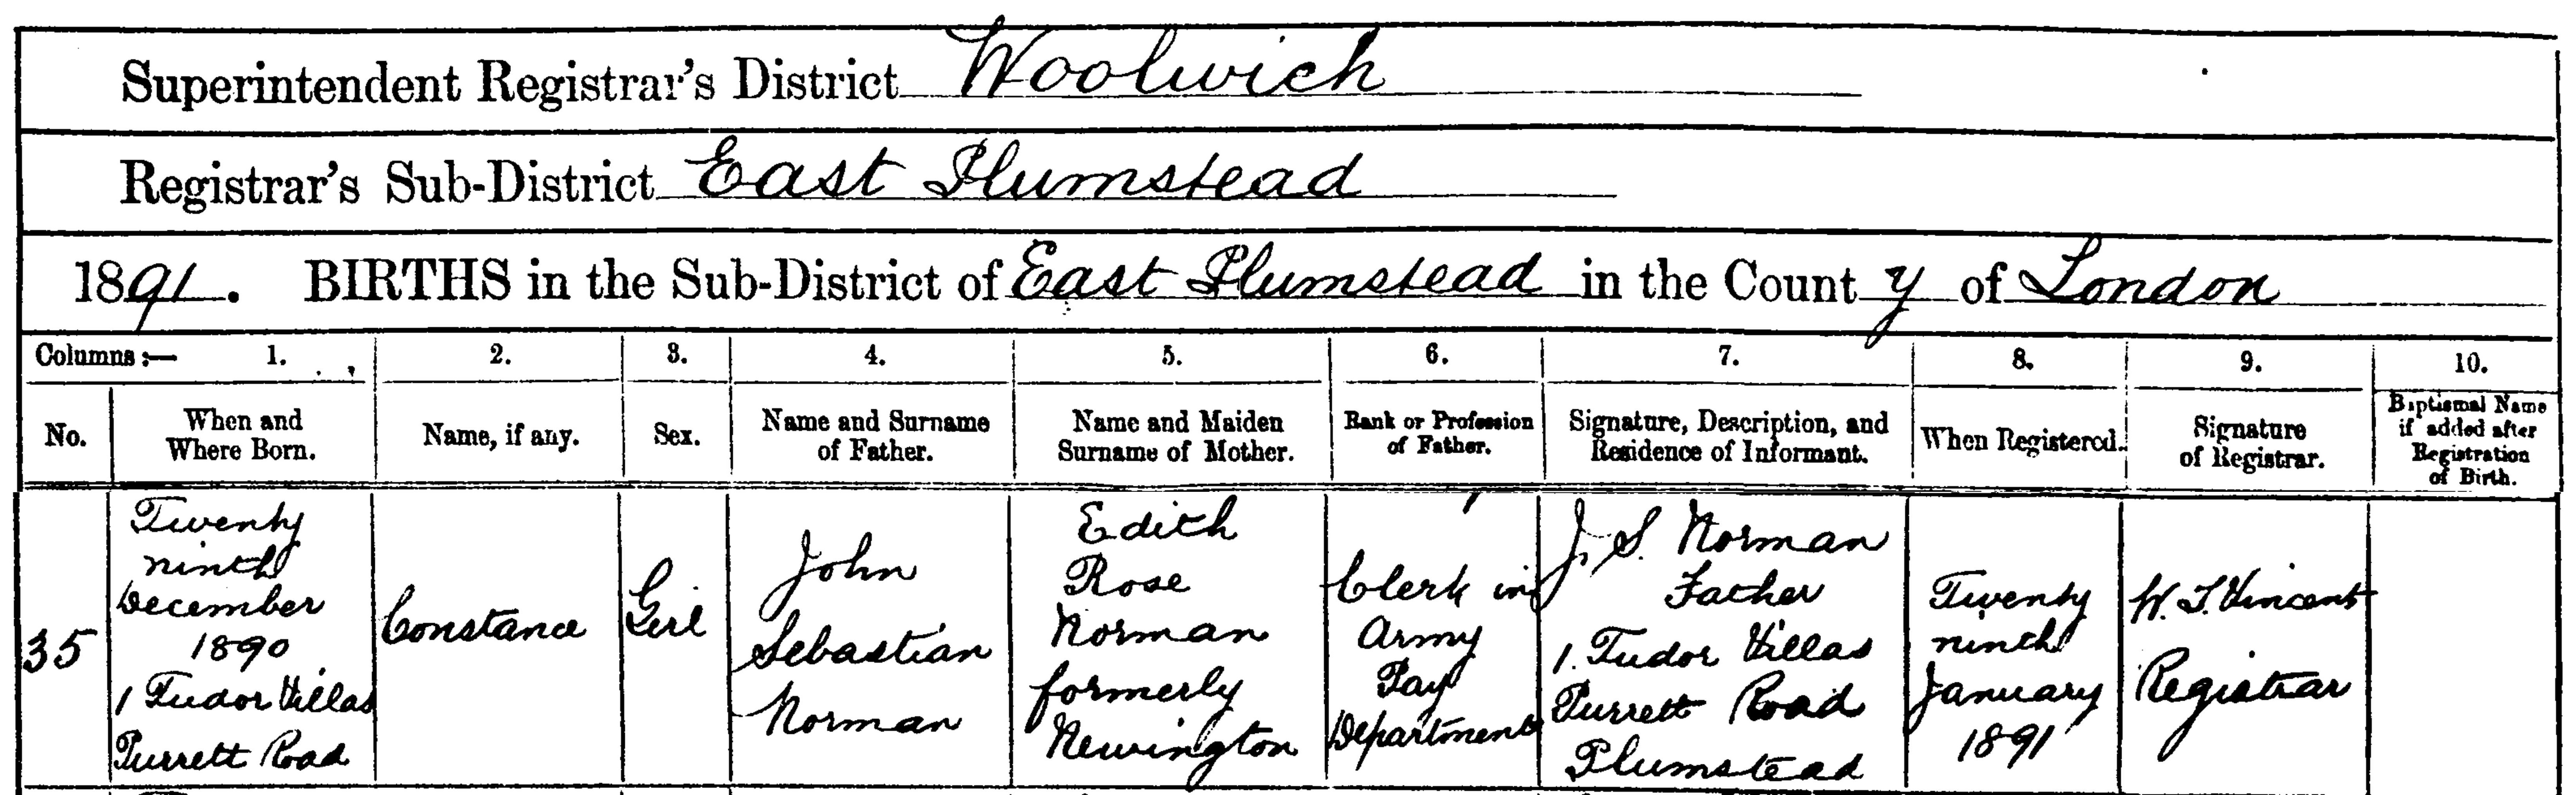 Superintendent Registrar's District Woolwich
Registrar's Sub-District East Plumstead
1891. BIRTHS in the Sub-District of East Plumstead in the County of London
Columns :— 1. 2. 3. 4. 5. 6. 7. 8. 9. 10.
No.
When and
Where Born.
Name, if any.
Sex.
Name and Surname
of Father.
Name and Maiden
Surname of Mother.
Rank or Profession
of Father.
Signature, Description, and
Residence of Informant.
When Registered.
Signature
of Registrar.
Baptismal Name
if added after
Registration
of Birth.
35
Twenty
ninth
December
1890
1 Tudor Villas
Purrett Road
Constance
Girl
John
Sebastian
Norman
Edith
Rose
Norman
formerly
Newington
Clerk in
Army
Pay
Department
J. S. Norman
Father
1. Tudor Villas
Purrett Road
Plumstead
Twenty
ninth
January
1891
W. T. Vincent
Registrar